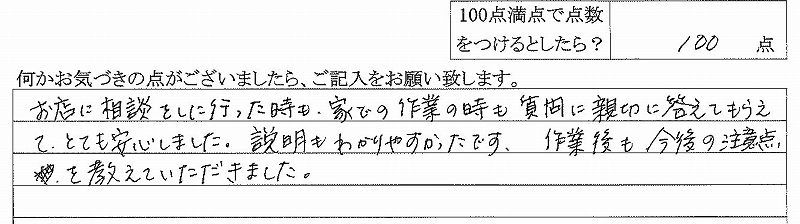 100点満点で点数
をつけるとしたら？ 100 点
何かお気づきの点がございましたら、ご記入をお願い致します。
お店に相談をしに行った時も、家での作業の時も質問に親切に答えてもらえ
て、とても安心しました。説明もわかりやすかったです、作業後も今後の注意点
を教えていただきました。